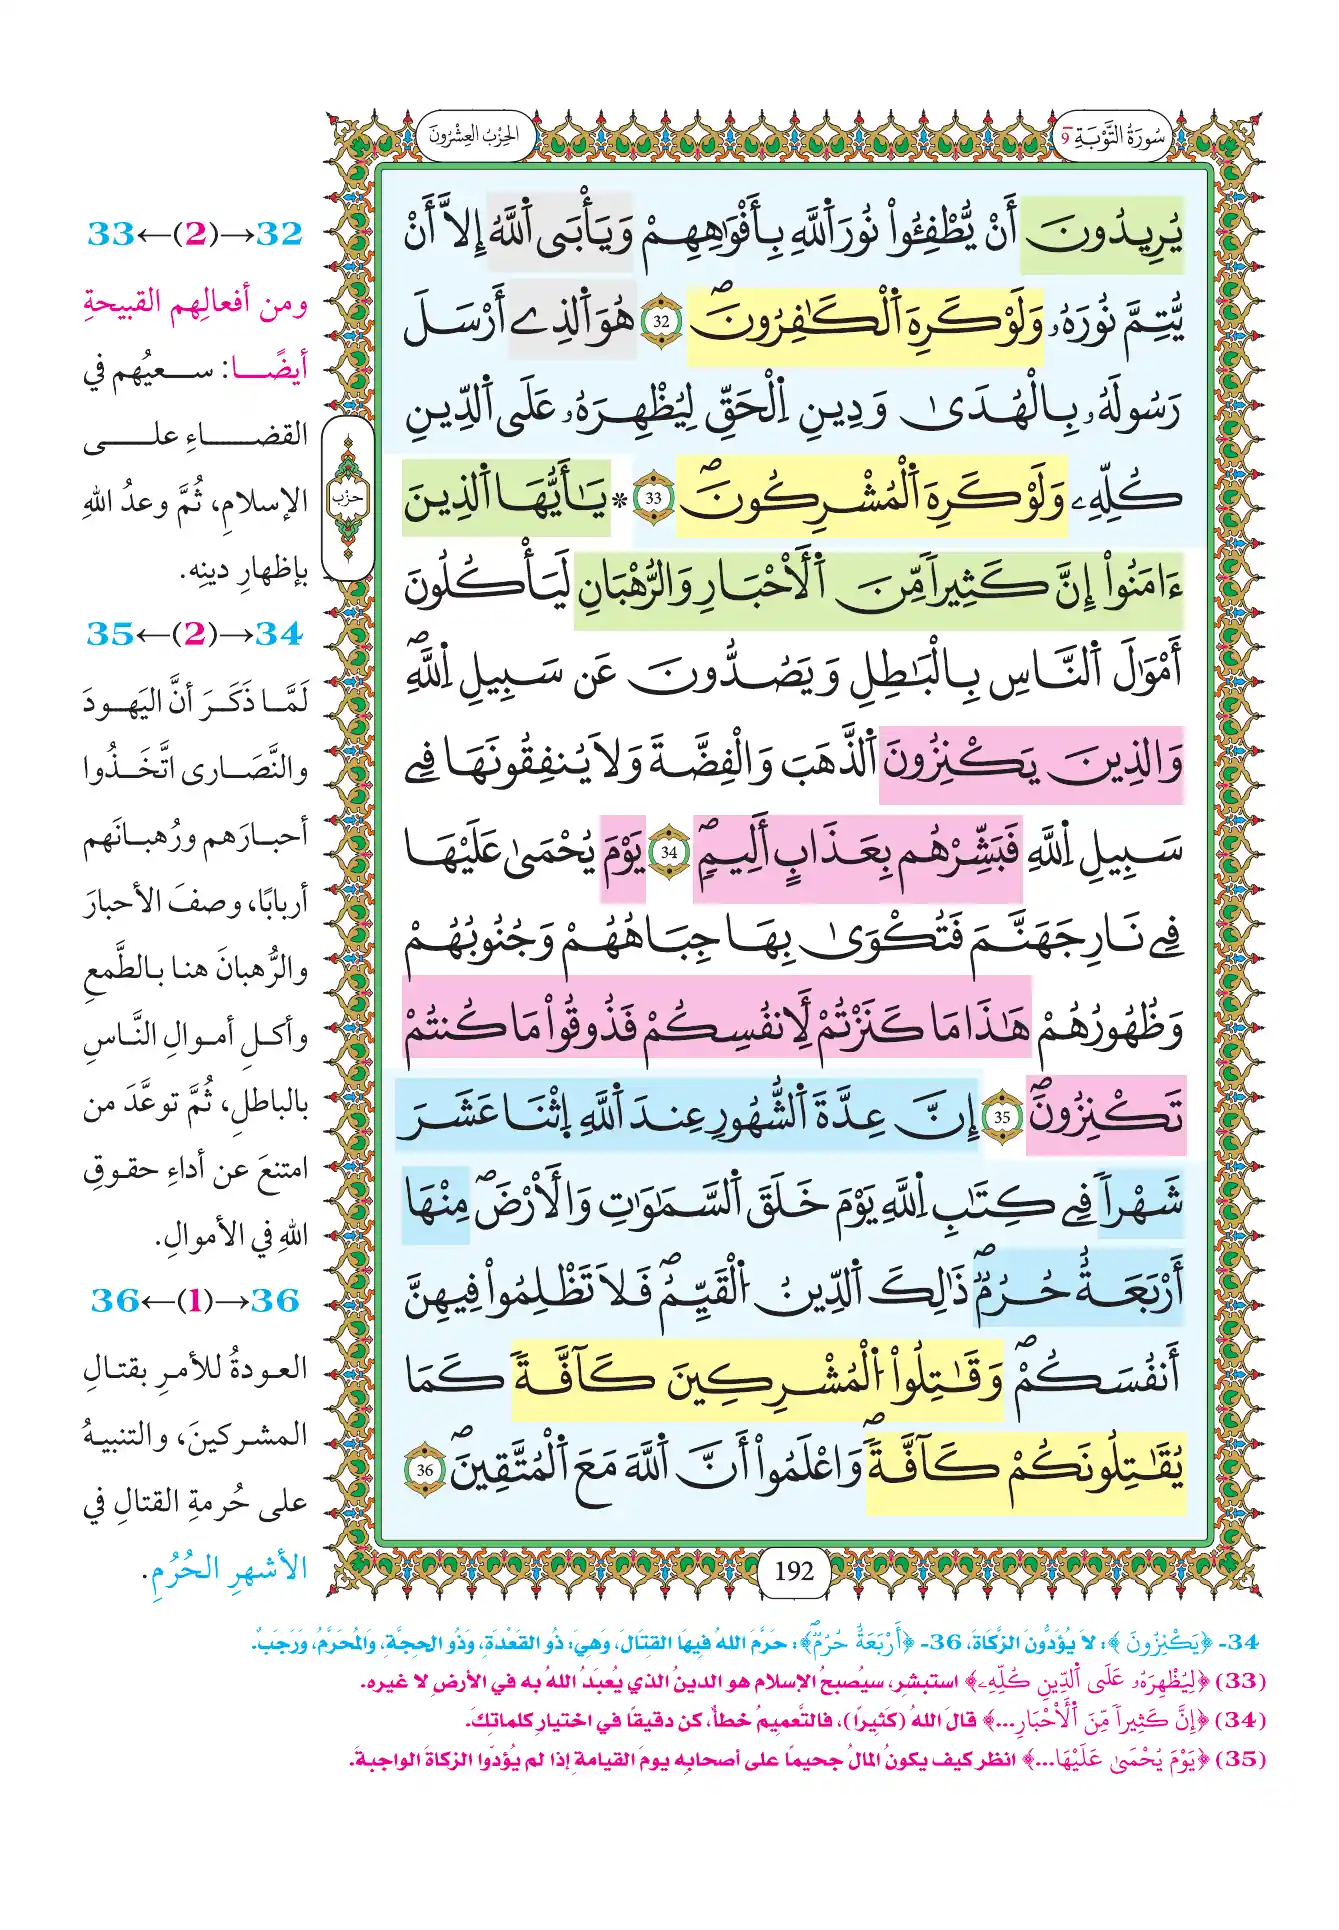 سُورَةُ التَّوْبَةِ 9
الحِزْبُ العِشْرُونَ
يُرِيدُونَ أَنْ يُّطْفِـُٔواْ نُورَ اَ۬للَّهِ بِأَفْوَٰهِهِمْ وَيَأْبَى اَ۬للَّهُ إِلَّا أَنْ
يُّتِمَّ نُورَهُۥ وَلَوْ كَرِهَ اَ۬لْكَٰفِرُونَۖ 32 هُوَ اَ۬لذِےٓ أَرْسَلَ
رَسُولَهُۥ بِالْهُدَىٰ وَدِينِ اِ۬لْحَقِّ لِيُظْهِرَهُۥ عَلَى اَ۬لدِّينِ
كُلِّهِۦ وَلَوْ كَرِهَ اَ۬لْمُشْرِكُونَۖ 33 * يَٰٓأَيُّهَا اَ۬لذِينَ
ءَامَنُواْ إِنَّ كَثِيراٗ مِّنَ اَ۬لْأَحْبَارِ وَالرُّهْبَانِ لَيَأْكُلُونَ
أَمْوَٰلَ اَ۬لنَّاسِ بِالْبَٰطِلِ وَيَصُدُّونَ عَن سَبِيلِ اِ۬للَّهِۖ
وَالذِينَ يَكْنِزُونَ اَ۬لذَّهَبَ وَالْفِضَّةَ وَلَا يُنفِقُونَهَا فِے
سَبِيلِ اِ۬للَّهِ فَبَشِّرْهُم بِعَذَابٍ أَلِيمٖۖ 34 يَوْمَ يُحْمَىٰ عَلَيْهَا
فِے نَارِ جَهَنَّمَ فَتُكْوَىٰ بِهَا جِبَاهُهُمْ وَجُنُوبُهُمْ
وَظُهُورُهُمْ هَٰذَا مَا كَنَزْتُمْ لِأَنفُسِكُمْ فَذُوقُواْ مَا كُنتُمْ
تَكْنِزُونَۖ 35 إِنَّ عِدَّةَ اَ۬لشُّهُورِ عِندَ اَ۬للَّهِ اِ۪ثْنَا عَشَرَ
شَهْراٗ فِے كِتَٰبِ اِ۬للَّهِ يَوْمَ خَلَقَ اَ۬لسَّمَٰوَٰتِ وَالْأَرْضَۖ مِنْهَا
أَرْبَعَةٌ حُرُمٞۖ ذَٰلِكَ اَ۬لدِّينُ اُ۬لْقَيِّمُۖ فَلَا تَظْلِمُواْ فِيهِنَّ
أَنفُسَكُمْۖ وَقَٰتِلُواْ اُ۬لْمُشْرِكِينَ كَآفَّةٗ كَمَا
يُقَٰتِلُونَكُمْ كَآفَّةٗۖ وَاعْلَمُواْ أَنَّ اَ۬للَّهَ مَعَ اَ۬لْمُتَّقِينَۖ 36
حزب
192
32→(2)←33
ومن أفعالِهم القبيحةِ
أيضًا: سعيُهم في
القضاءِ على
الإسلامِ، ثُمَّ وعدُ اللهِ
بإظهارِ دينِه.
34→(2)←35
لَمَّا ذَكَرَ أنَّ اليَهودَ
والنَّصَارى اتَّخَذُوا
أحبارَهم ورُهبانَهم
أربابًا، وصفَ الأحبارَ
والرُّهبانَ هنا بالطَّمعِ
وأكلِ أموالِ النَّاسِ
بالباطلِ، ثُمَّ توعَّدَ من
امتنعَ عن أداءِ حقوقِ
اللهِ في الأموالِ.
36→(1)←36
العودةُ للأمرِ بقتالِ
المشركينَ، والتنبيهُ
على حُرمةِ القتالِ في
الأشهرِ الحُرُمِ.
34- ﴿يَكْنِزُونَ﴾: لاَ يُؤَدُّونَ الزَّكَاةَ، 36- ﴿أَرْبَعَةٌ حُرُمٞۖ﴾: حَرَّمَ اللهُ فِيهَا القِتَالَ، وَهِيَ: ذُو القَعْدَةِ، وَذُو الحِجَّةِ، وَالمُحَرَّمُ، وَرَجَبٌ.
(33) ﴿لِيُظْهِرَهُۥ عَلَى اَ۬لدِّينِ كُلِّهِۦ﴾ استبشِر، سيُصبحُ الإسلام هو الدينُ الذي يُعبَدُ اللهُ به في الأرضِ لا غيره.
(34) ﴿إِنَّ كَثِيراٗ مِّنَ اَ۬لْأَحْبَارِ...﴾ قالَ اللهُ (كَثِيرًا)، فالتَّعمِيمُ خطأٌ، كن دقيقًا في اختيارِ كلماتِكَ.
(35) ﴿يَوْمَ يُحْمَىٰ عَلَيْهَا...﴾ انظر كيف يكونُ المالُ جحيمًا على أصحابِه يومَ القيامةِ إذا لم يُؤدّوا الزكاةَ الواجبةَ.